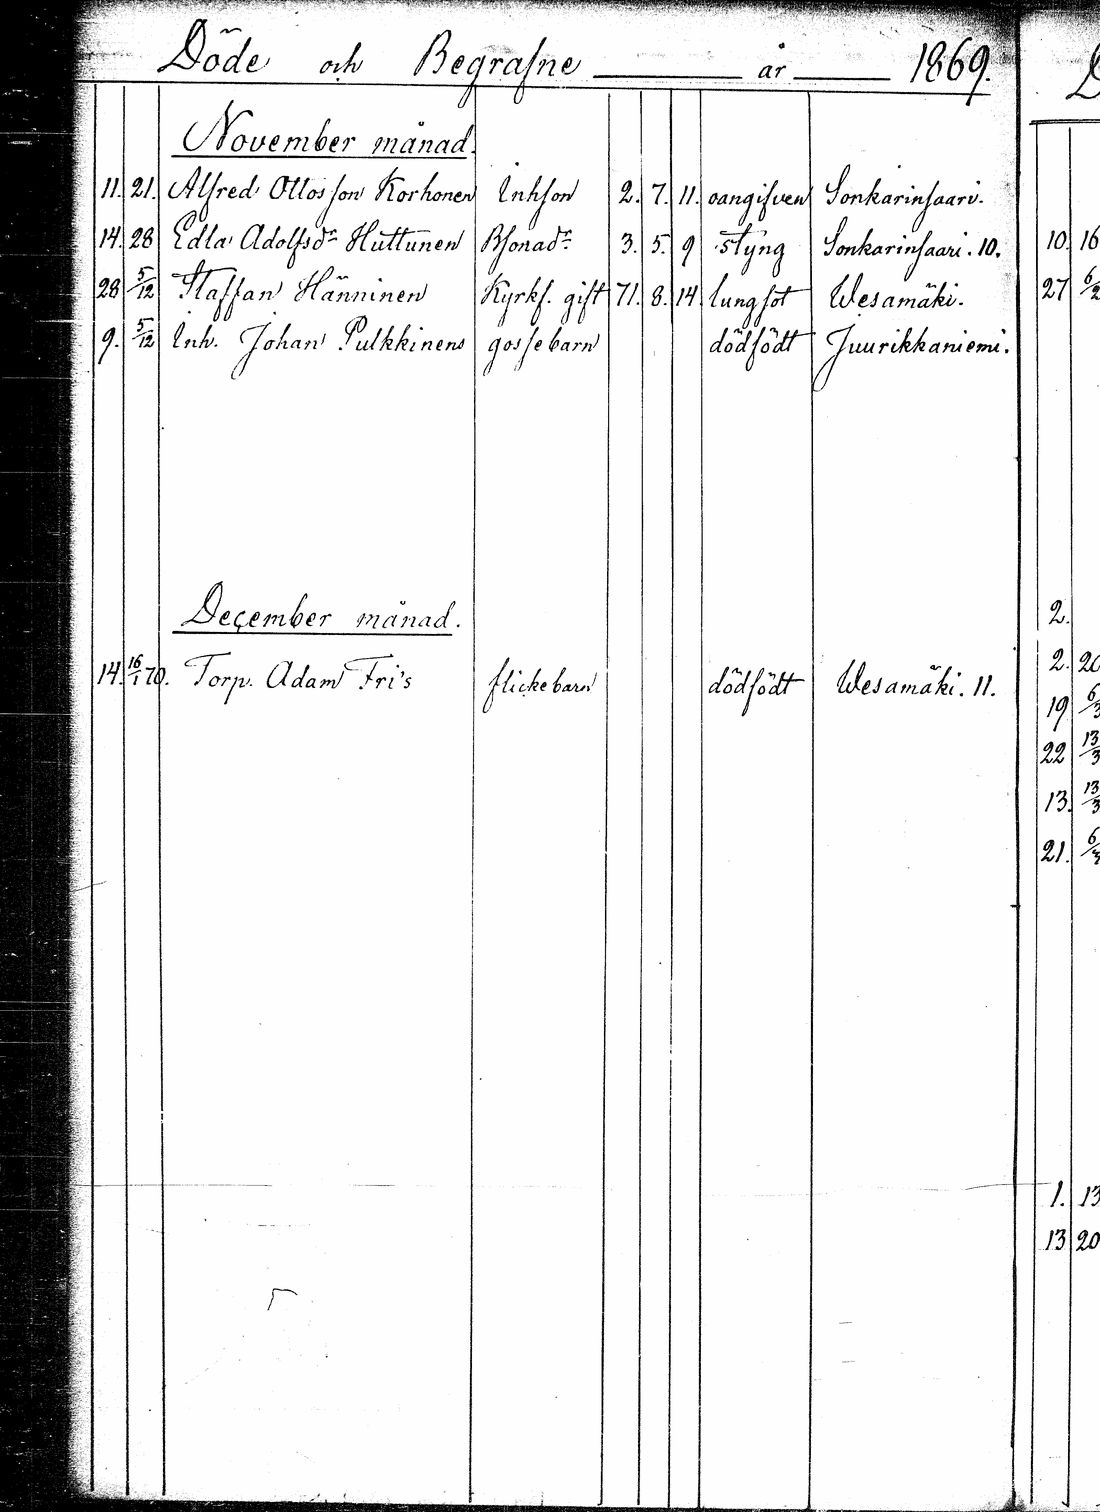 Döde och Begrafne år 1869.
November månad.
11. 21. Alfred Ottosson Korhonen Inhson 2. 7. 11. oangifven Sonkarinsaari.
14. 28 Edla Adolfsdr Huttunen Bsonadr 3. 5. 9 styng Sonkarinsaari. 10.
28 5/12 Staffan Hänninen Kyrkf. gift 71. 8. 14. lungsot Wesamäki.
9. 5/12 Inh. Johan Pulkkinens gossebarn dödfödt Juurikkaniemi.
December månad.
14. 16/1 70. Torp. Adam Fri's flickebarn dödfödt Wesamäki. 11.
10. 16
27 6/2
2.
2. 20
19 6/3
22 13/3
13. 13/3
21. 6/
1. 13
13 20